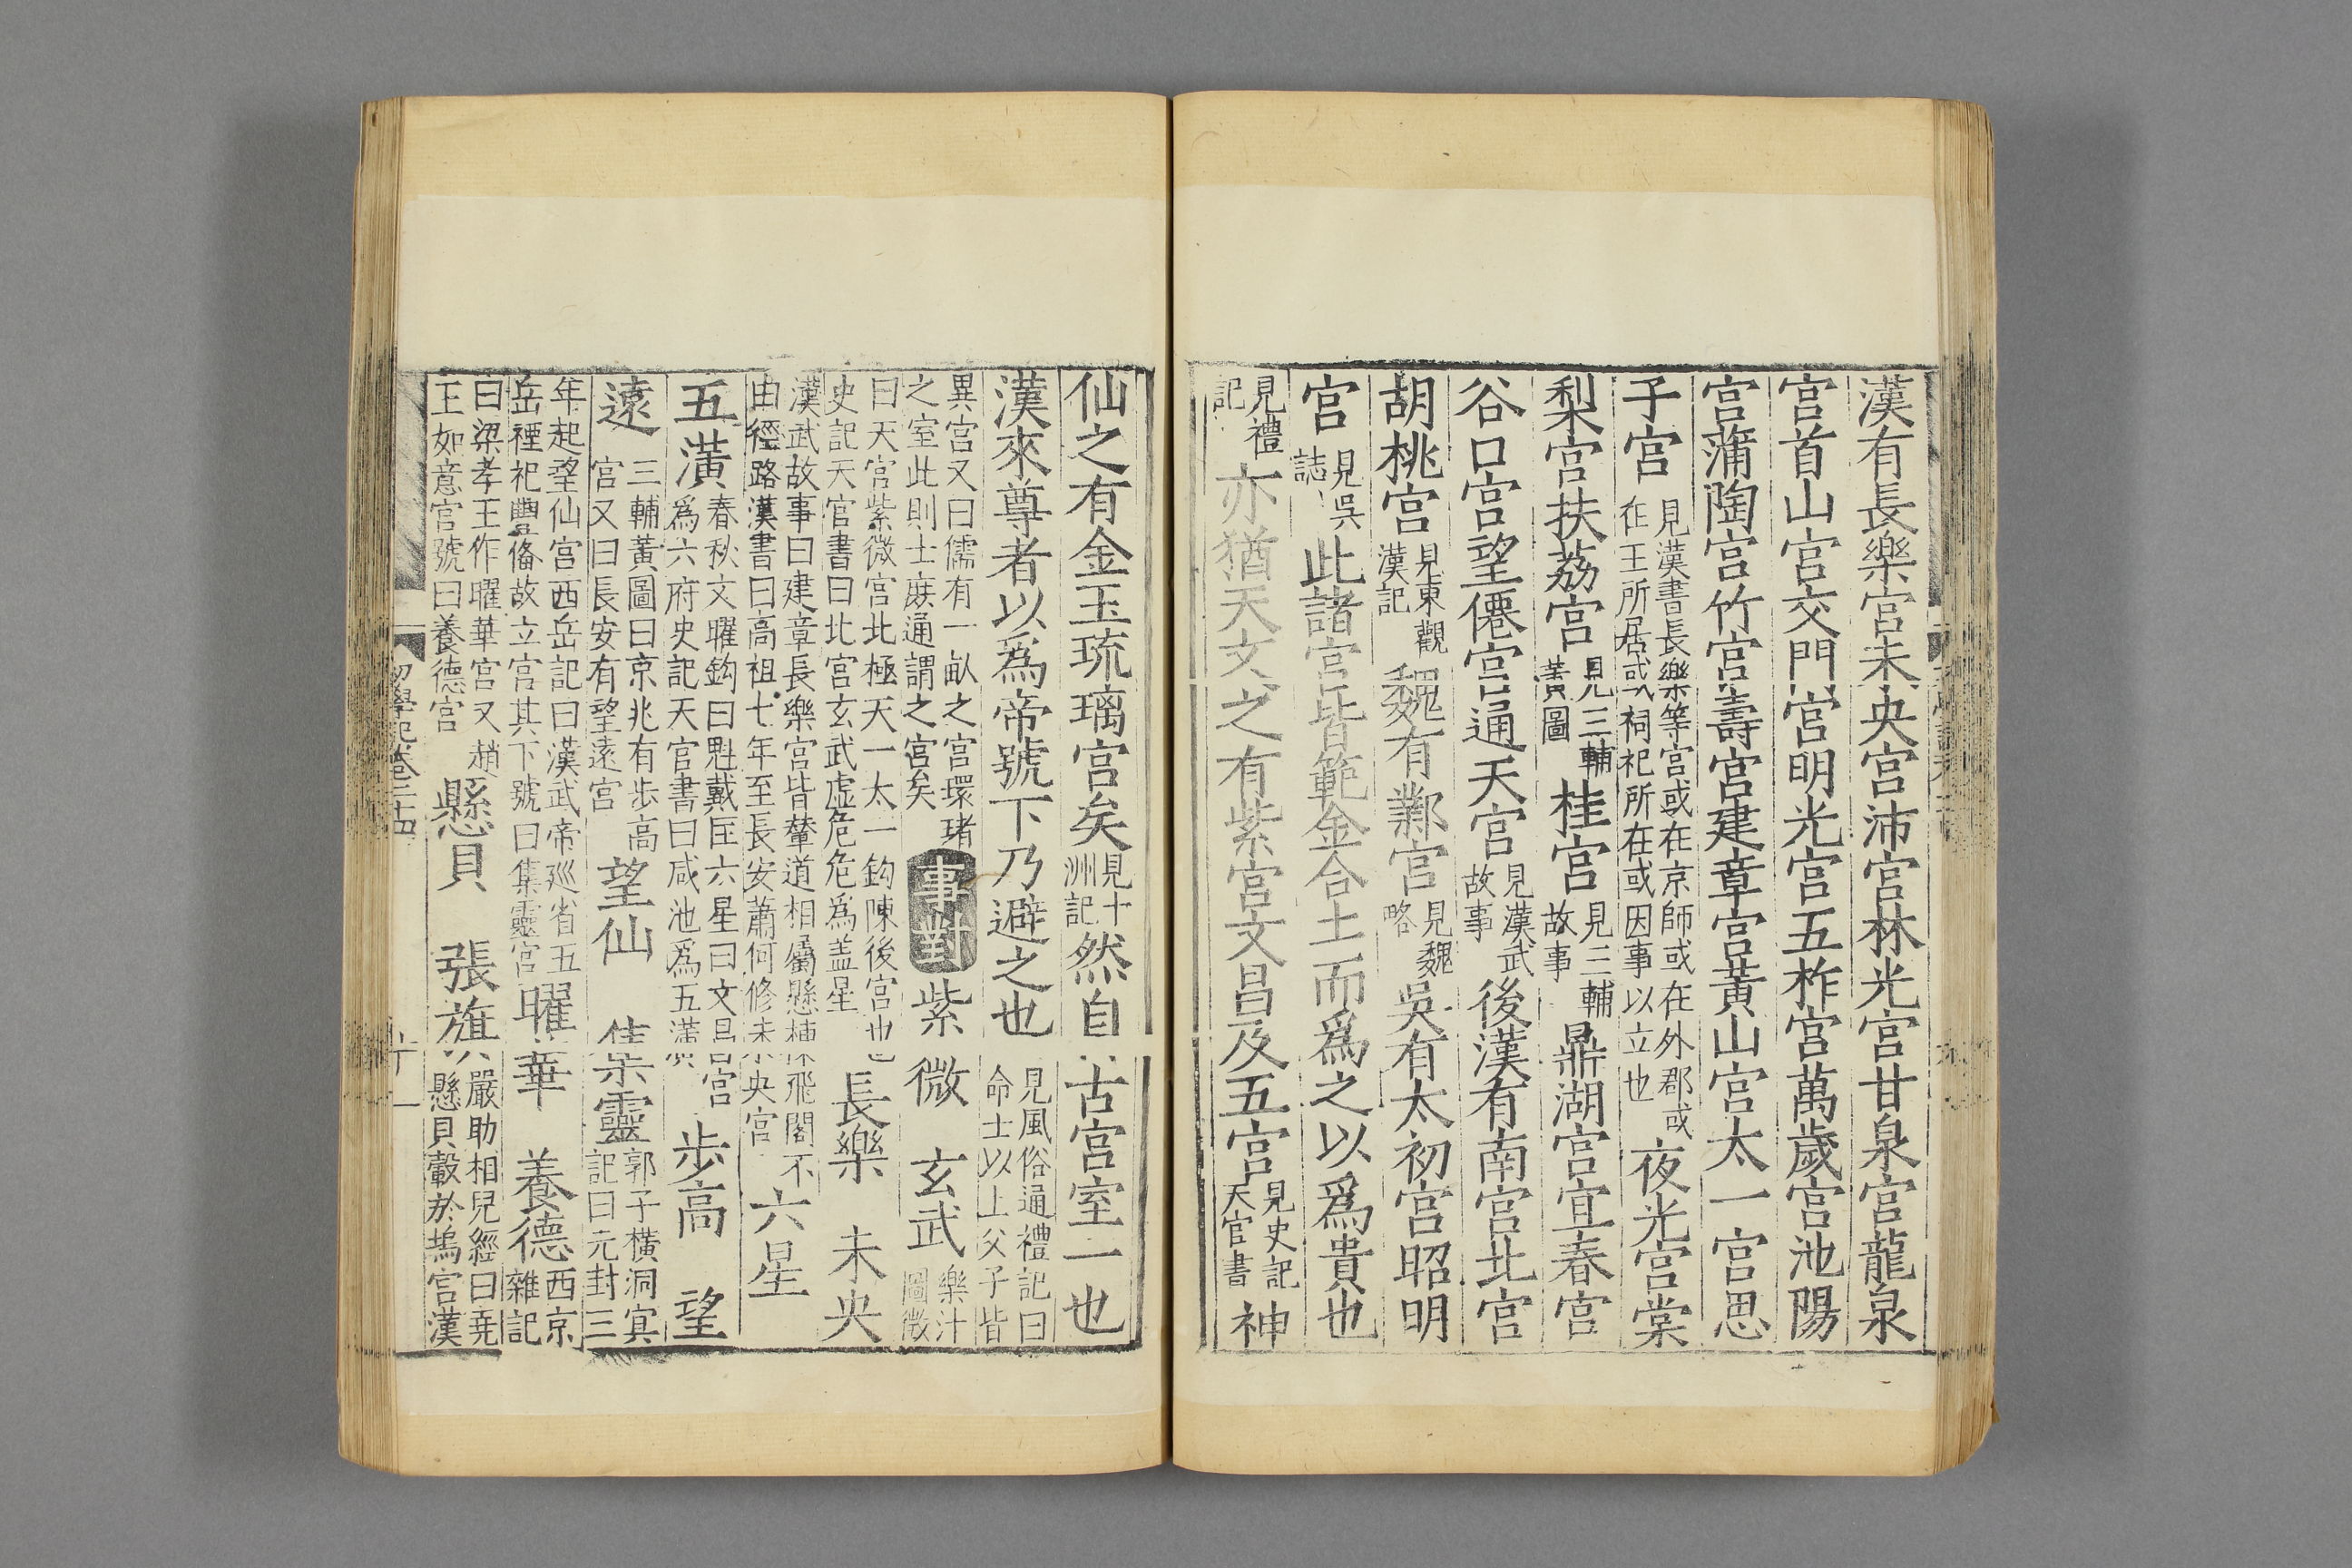 漢有長樂宮未央宮沛宮林光宮甘泉宮龍泉
宮首山宮交門宮明光宮五柞宮萬歲宮池陽
宮蒲陶宮竹宮壽宮建章宮黃山宮太一宮思
子宮見漢書長樂等宮或在京師或在外郡或在王所居或祠祀所在或因事以立也夜光宮棠
梨宮扶荔宮見三輔黃圖桂宮見三輔故事鼎湖宮宜春宮
谷口宮望僊宮通天宮見漢武故事後漢有南宮北宮
胡桃宮見東觀漢記魏有鄴宮見魏略吳有太初宮昭明
宮見吳誌此諸宮皆範金合土而爲之以爲貴也
見禮記亦猶天文之有紫宮文昌及五宮見史記天官書神
仙之有金玉琉璃宮矣見十洲記然自古宮室一也
漢來尊者以爲帝號下乃避之也見風俗通禮記曰命士以上父子皆
異宮又曰儒有一畝之宮環堵之室此則士庶通謂之宮矣事對紫微 玄武樂汁圖徵
曰天宮紫微宮北極天一太一鈎陳後宮也史記天官書曰北宮玄武虛危危為盖星長樂 未央
漢武故事曰建章長樂宮皆輦道相屬懸棟飛閣不由徑路漢書曰高祖七年至長安蕭何修未央宮六星
五潢春秋文曜鈎曰魁戴匡六星曰文昌宮爲六府史記天官書曰咸池爲五潢步高 望
遠三輔黃圖曰京兆有步高宮又曰長安有望遠宮望仙 集靈郭子橫洞冥記曰元封三
年起望仙宮西岳記曰漢武帝巡省五岳禋祀豐俻故立宮其下號曰集靈宮曜華 養德西京雜記
曰梁孝王作曜華宮又趙王如意宮號曰養德宮懸貝 張旗嚴助相兒經曰堯懸貝轂於塢宮漢
初學記卷二十四
十一